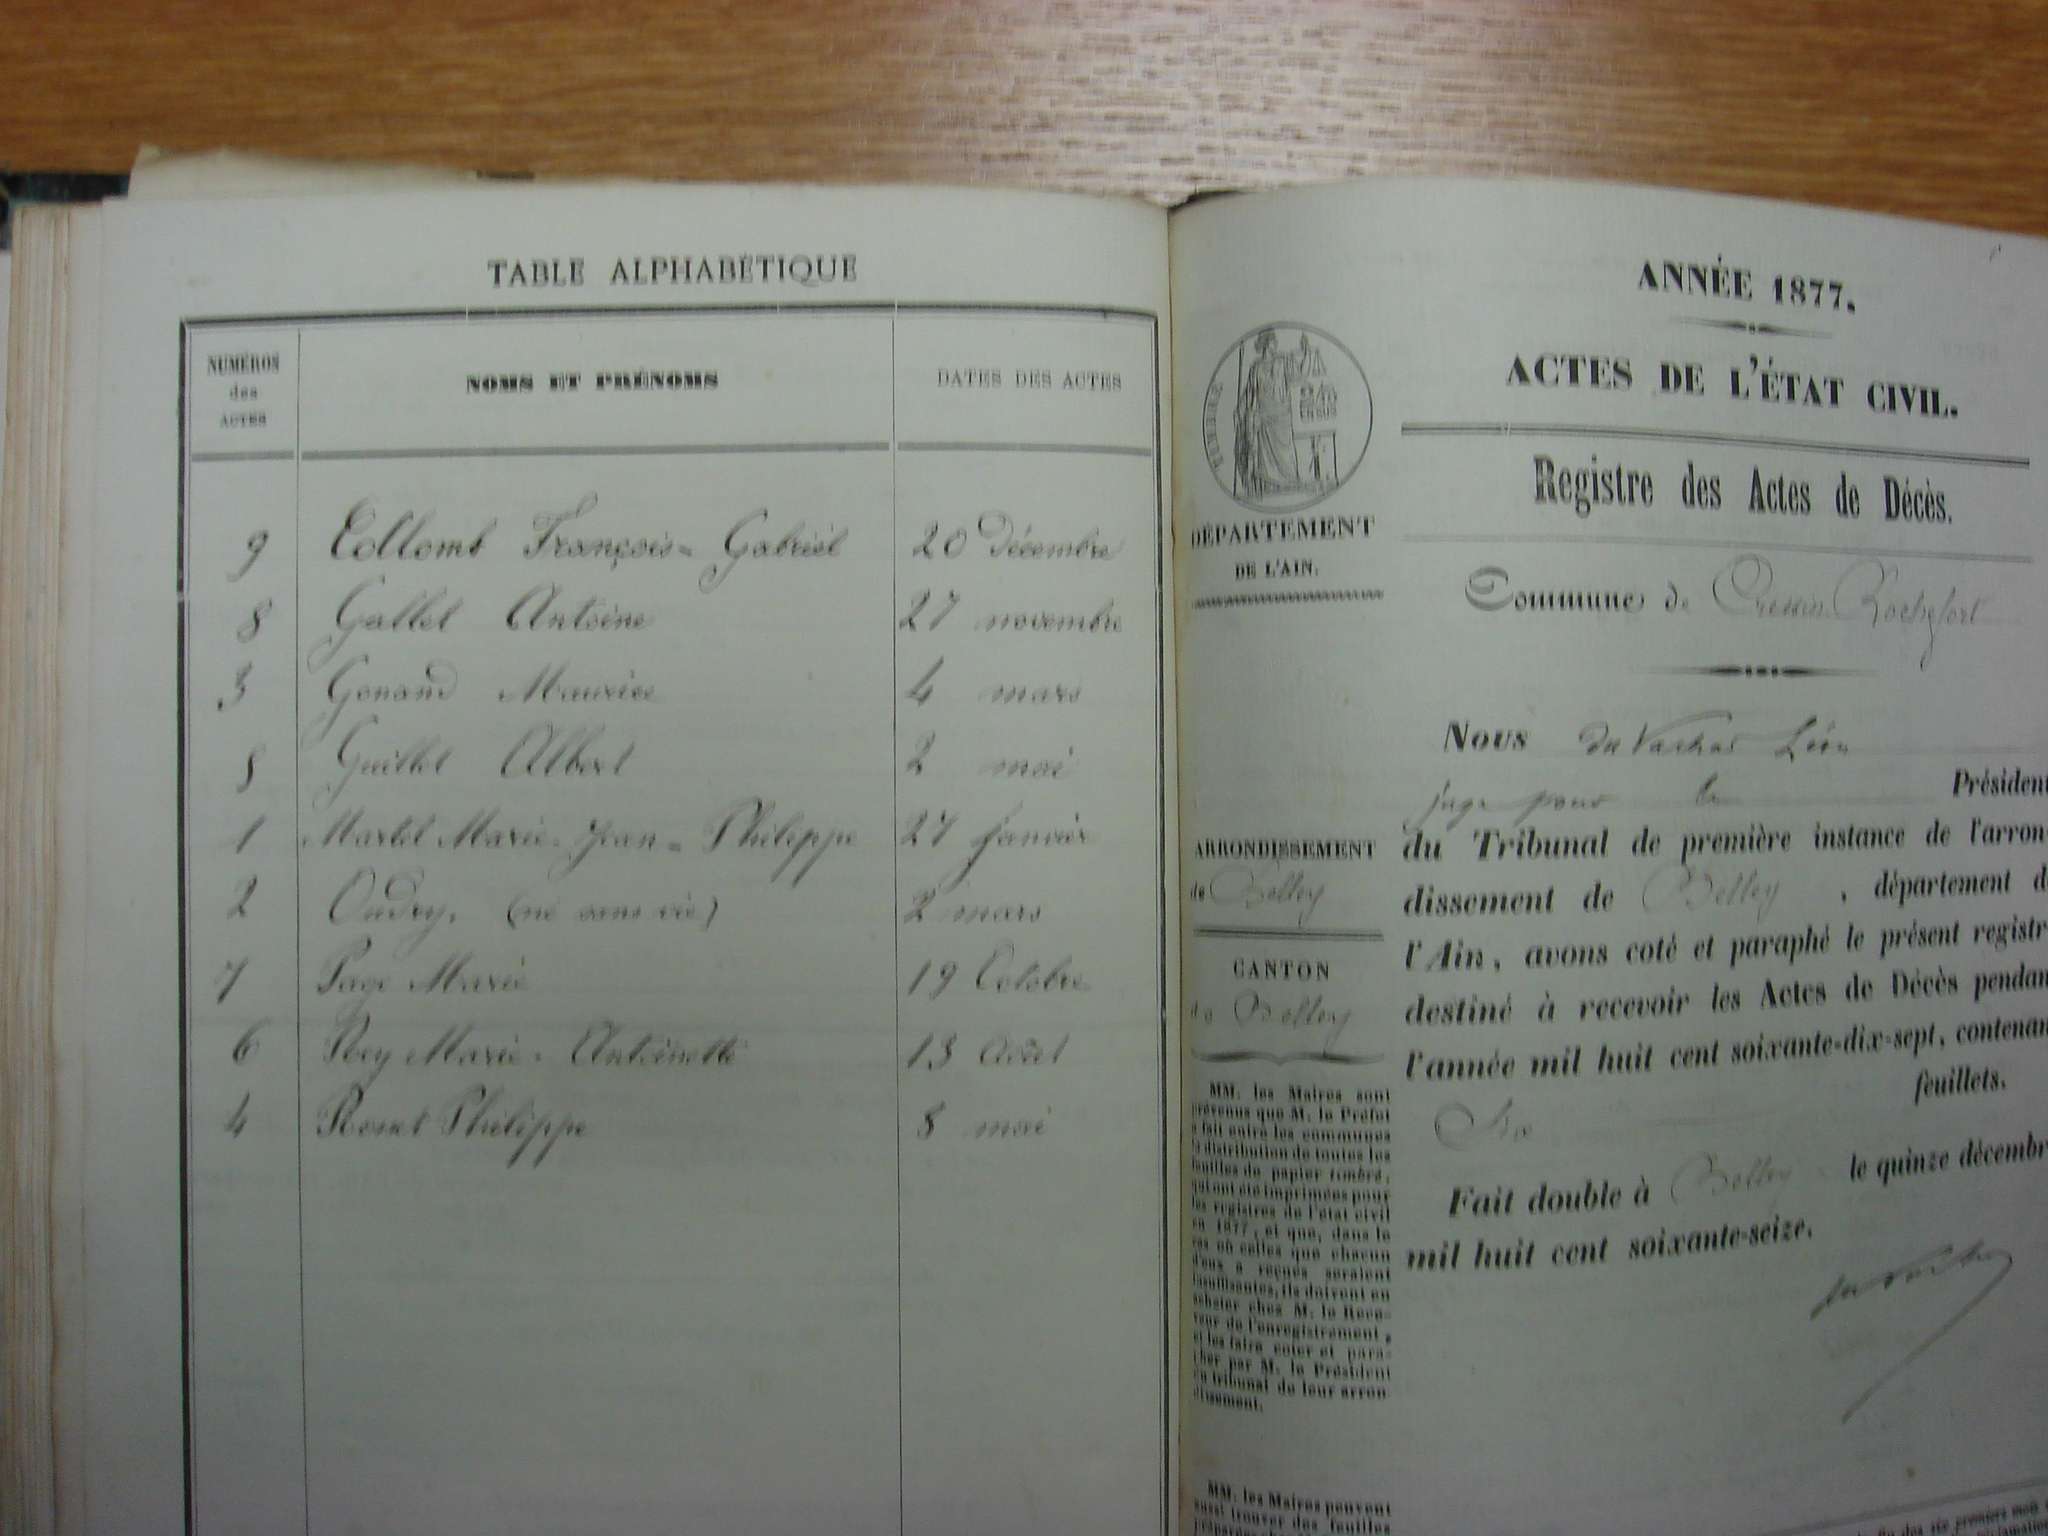 TABLE ALPHABÉTIQUE
NUMÉROS des ACTES
NOMS ET PRÉNOMS
DATES DES ACTES
9 Collomb François-Gabriel 20 Décembre
8 Gallet Antoine 27 novembre
3 Gonand Maurice 4 mars
5 Guillet Albert 2 mai
1 Martel Marie-Jean-Philippe 27 Janvier
2 Oudry. (né sans vie) 2 mars
7 Page Marie 19 Octobre
6 Rey Marie-Antoinette 13 Août
4 Philippe 8 mai
ANNÉE 1877.
ACTES DE L'ÉTAT CIVIL.
Registre des Actes de Décès.
Commune de Cressin-Rochefort
TIMBRE
2/10 EN SUS
DÉPARTEMENT
DE L'AIN.
ARRONDISSEMENT
de Belley
CANTON
de Belley
Nous du Vachat Léon
juge pour le Président
du Tribunal de première instance de l'arron-
dissement de Belley, département de
l'Ain, avons coté et paraphé le présent registre
destiné à recevoir les Actes de Décès pendant
l'année mil huit cent soixante-dix-sept, contenant
Six feuillets.
Fait double à Belley le quinze décembre
mil huit cent soixante-seize.
MM. les Maires sont
prévenus que M. le Préfet
a fait entre les communes
la distribution de toutes les
feuilles de papier timbré,
qui ont été imprimées pour
les registres de l'état civil
en 1877, et que, dans le
cas où celles que chacun
d'eux a reçues seraient
insuffisantes, ils doivent en
acheter chez M. le Rece-
veur de l'enregistrement,
et les faire coter et para-
pher par M. le Président
du tribunal de leur arron-
dissement.
MM. les Maires peuvent
aussi trouver des feuilles
des six premiers mois